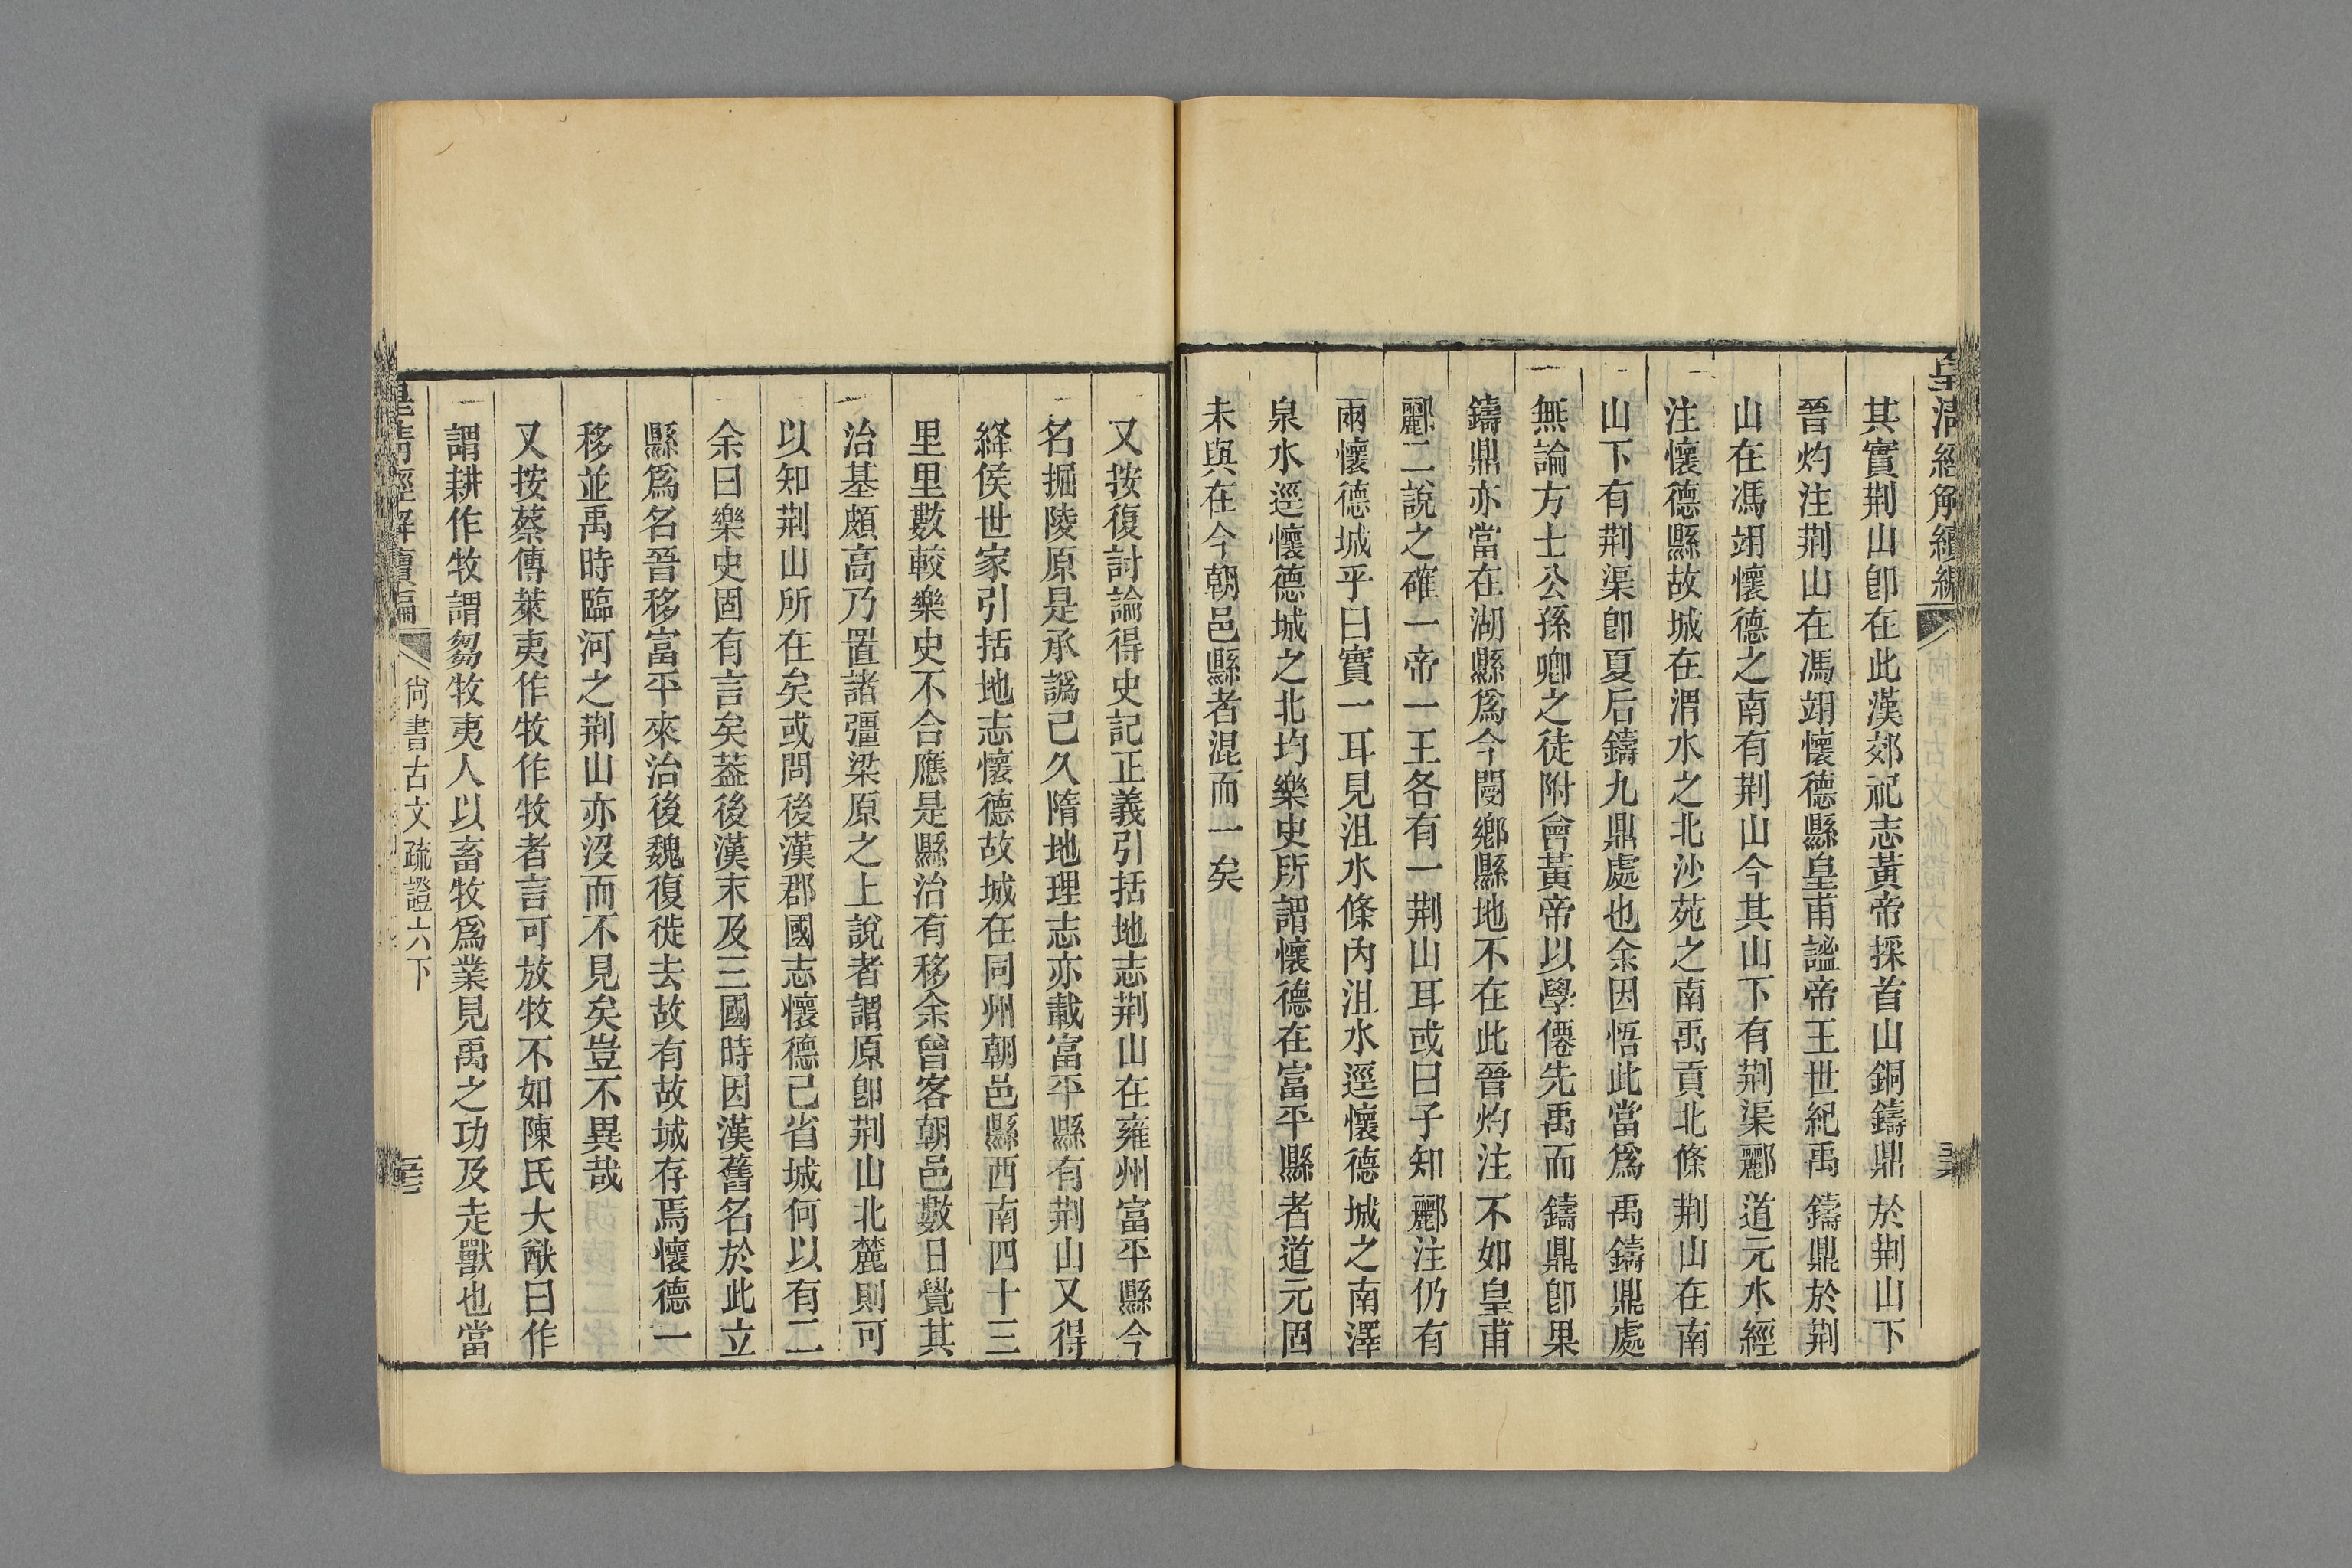 皇清經解續編
其實荆山卽在此漢郊祀志黃帝採首山銅鑄鼎於荆山下
晉灼注荆山在馮翊懷德縣皇甫謐帝王世紀禹鑄鼎於荆
山在馮翊懷德之南有荆山今其山下有荆渠酈道元水經
注懷德縣故城在渭水之北沙苑之南禹貢北條荆山在南
山下有荆渠卽夏后鑄九鼎處也余因悟此當爲禹鑄鼎處
無論方士公孫卿之徒附會黃帝以學僊先禹而鑄鼎卽果
鑄鼎亦當在湖縣爲今閿鄉縣地不在此晉灼注不如皇甫
酈二說之確一帝一王各有一荆山耳或曰子知酈注仍有
兩懷德城乎曰實一耳見沮水條內沮水逕懷德城之南澤
泉水逕懷德城之北均樂史所謂懷德在富平縣者道元固
未與在今朝邑縣者混而一矣
又按復討論得史記正義引括地志荆山在雍州富平縣今
名掘陵原是承譌已久隋地理志亦載富平縣有荆山又得
絳侯世家引括地志懷德故城在同州朝邑縣西南四十三
里里數較樂史不合應是縣治有移余曾客朝邑數日覺其
治基頗高乃置諸彊梁原之上說者謂原卽荆山北麓則可
以知荆山所在矣或問後漢郡國志懷德已省城何以有二
余曰樂史固有言矣葢後漢末及三國時因漢舊名於此立
縣爲名晉移富平來治後魏復徙去故有故城存焉懷德一
移並禹時臨河之荆山亦沒而不見矣豈不異哉
又按蔡傳萊夷作牧作牧者言可放牧不如陳氏大猷曰作
謂耕作牧謂芻牧夷人以畜牧爲業見禹之功及走獸也當
皇清經解續編
尙書古文疏證六下